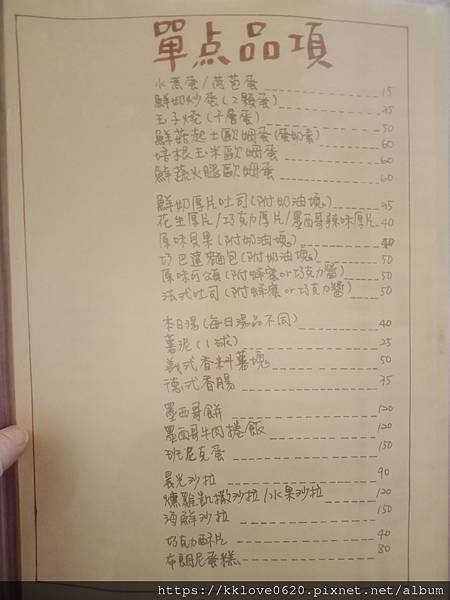 單点品項
水煮蛋/荷苞蛋 15
鮮奶炒蛋(2顆蛋) 35
玉子燒(千層蛋) 50
鮮菇起士歐姆蛋(蛋奶素) 60
培根玉米歐姆蛋 60
鮮蔬火腿歐姆蛋 60
鮮奶厚片吐司(附奶油塊) 35
花生厚片/巧克力厚片/墨西哥辣味厚片 40
原味貝果(附奶油塊) 40
巧巴達麵包(附奶油塊) 50
原味可頌(附蜂蜜or巧克力醬) 50
法式吐司(附蜂蜜or巧克力醬) 50
本日湯(每日湯品不同) 40
薯泥(1球) 25
義式香料薯塊 50
德式香腸 75
墨西哥餅 120
墨西哥牛肉捲飯 120
班尼克蛋 150
晨光沙拉 90
燻雞凱撒沙拉/水果沙拉 120
海鮮沙拉 150
巧克力酥片 40
布朗尼蛋糕 80
https://kklove0620.pixnet.net/album